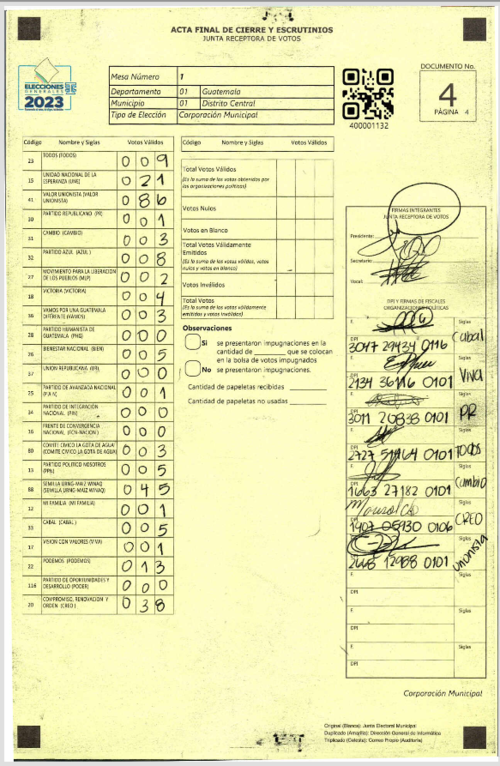 ACTA FINAL DE CIERRE Y ESCRUTINIOS
JUNTA RECEPTORA DE VOTOS
ELECCIONES
GENERALES
2023
Mesa Número 1
Departamento 01 Guatemala
Municipio 01 Distrito Central
Tipo de Elección Corporación Municipal
400001132
DOCUMENTO No.
4
PÁGINA 4
Código Nombre y Siglas Votos Válidos
23 TODOS (TODOS) 009
15 UNIDAD NACIONAL DE LA
ESPERANZA (UNE) 021
41 VALOR UNIONISTA (VALOR
UNIONISTA) 086
PARTIDO REPUBLICANO (PR) 001
CAMBIO (CAMBIO) 003
32 PARTIDO AZUL (AZUL) 008
27 MOVIMIENTO PARA LA LIBERACION
DE LOS PUEBLOS (MLP) 002
18 VICTORIA (VICTORIA) 004
36 VAMOS POR UNA GUATEMALA
DIFERENTE (VAMOS) 003
PARTIDO HUMANISTA DE
GUATEMALA (PHG) 000
BIENESTAR NACIONAL (BIEN) 005
UNION REPUBLICANA (UR) 000
PARTIDO DE AVANZADA NACIONAL
(P.A.N) 001
PARTIDO DE INTEGRACION
NACIONAL (PIN) 000
FRENTE DE CONVERGENCIA
NACIONAL (FCN-NACION) 000
COMITE CIVICO LA GOTA DE AGUA
(COMITE CIVICO LA GOTA DE AGUA) 003
PARTIDO POLITICO NOSOTROS
(PPN) 005
SEMILLA URNG-MAIZ WINAQ
(SEMILLA URNG-MAIZ WINAQ) 045
12 MI FAMILIA (MI FAMILIA) 001
CABAL (CABAL) 005
17 VISION CON VALORES (VIVA) 001
22 PODEMOS (PODEMOS) 013
116 PARTIDO DE OPORTUNIDADES Y
DESARROLLO (PODER) 000
20 COMPROMISO, RENOVACION Y
ORDEN (CREO) 038
Código Nombre y Siglas Votos Válidos
Total Votos Válidos
(Es la suma de los votos obtenidos por
las organizaciones políticas)
Votos Nulos
Votos en Blanco
Total Votos Válidamente
Emitidos
(Es la suma de los votos válidos, votos
nulos y votos en blanco)
Votos Inválidos
Total Votos
(Es la suma de los votos válidamente
emitidos y votos inválidos)
Observaciones
Si se presentaron impugnaciones en la
cantidad de ______ que se colocan
en la bolsa de votos impugnados
No se presentaron impugnaciones.
Cantidad de papeletas recibidas ______
Cantidad de papeletas no usadas ______
FIRMAS INTEGRANTES
JUNTA RECEPTORA DE VOTOS
Presidente:
Secretario:
Vocal:
DPI Y FIRMAS DE FISCALES
ORGANIZACIONES POLÍTICAS
3047 29434 0116 Cabal
2134 36116 0101 Viva
3011 20838 0101 PR
2727 51464 0101 TODOS
1663 27182 0101 Cambio
1907 05930 0106 CREO
2665 12988 0101 Unionista
F. Siglas
DPI
F. Siglas
DPI
F. Siglas
DPI
F. Siglas
DPI
Corporación Municipal
Original (Blanco): Junta Electoral Municipal
Duplicado (Amarillo): Dirección General de Informática
Triplicado (Celeste): Correo Propio (Auditoría)